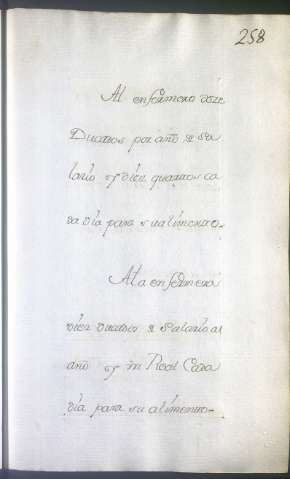 258
Al enfermero doze
Ducados por año de Sa
lario y diez quartos ca
da dia para su alimento.
A la enfermera
diez ducados de Salario al
año y un Real Cada
dia para su alimento.